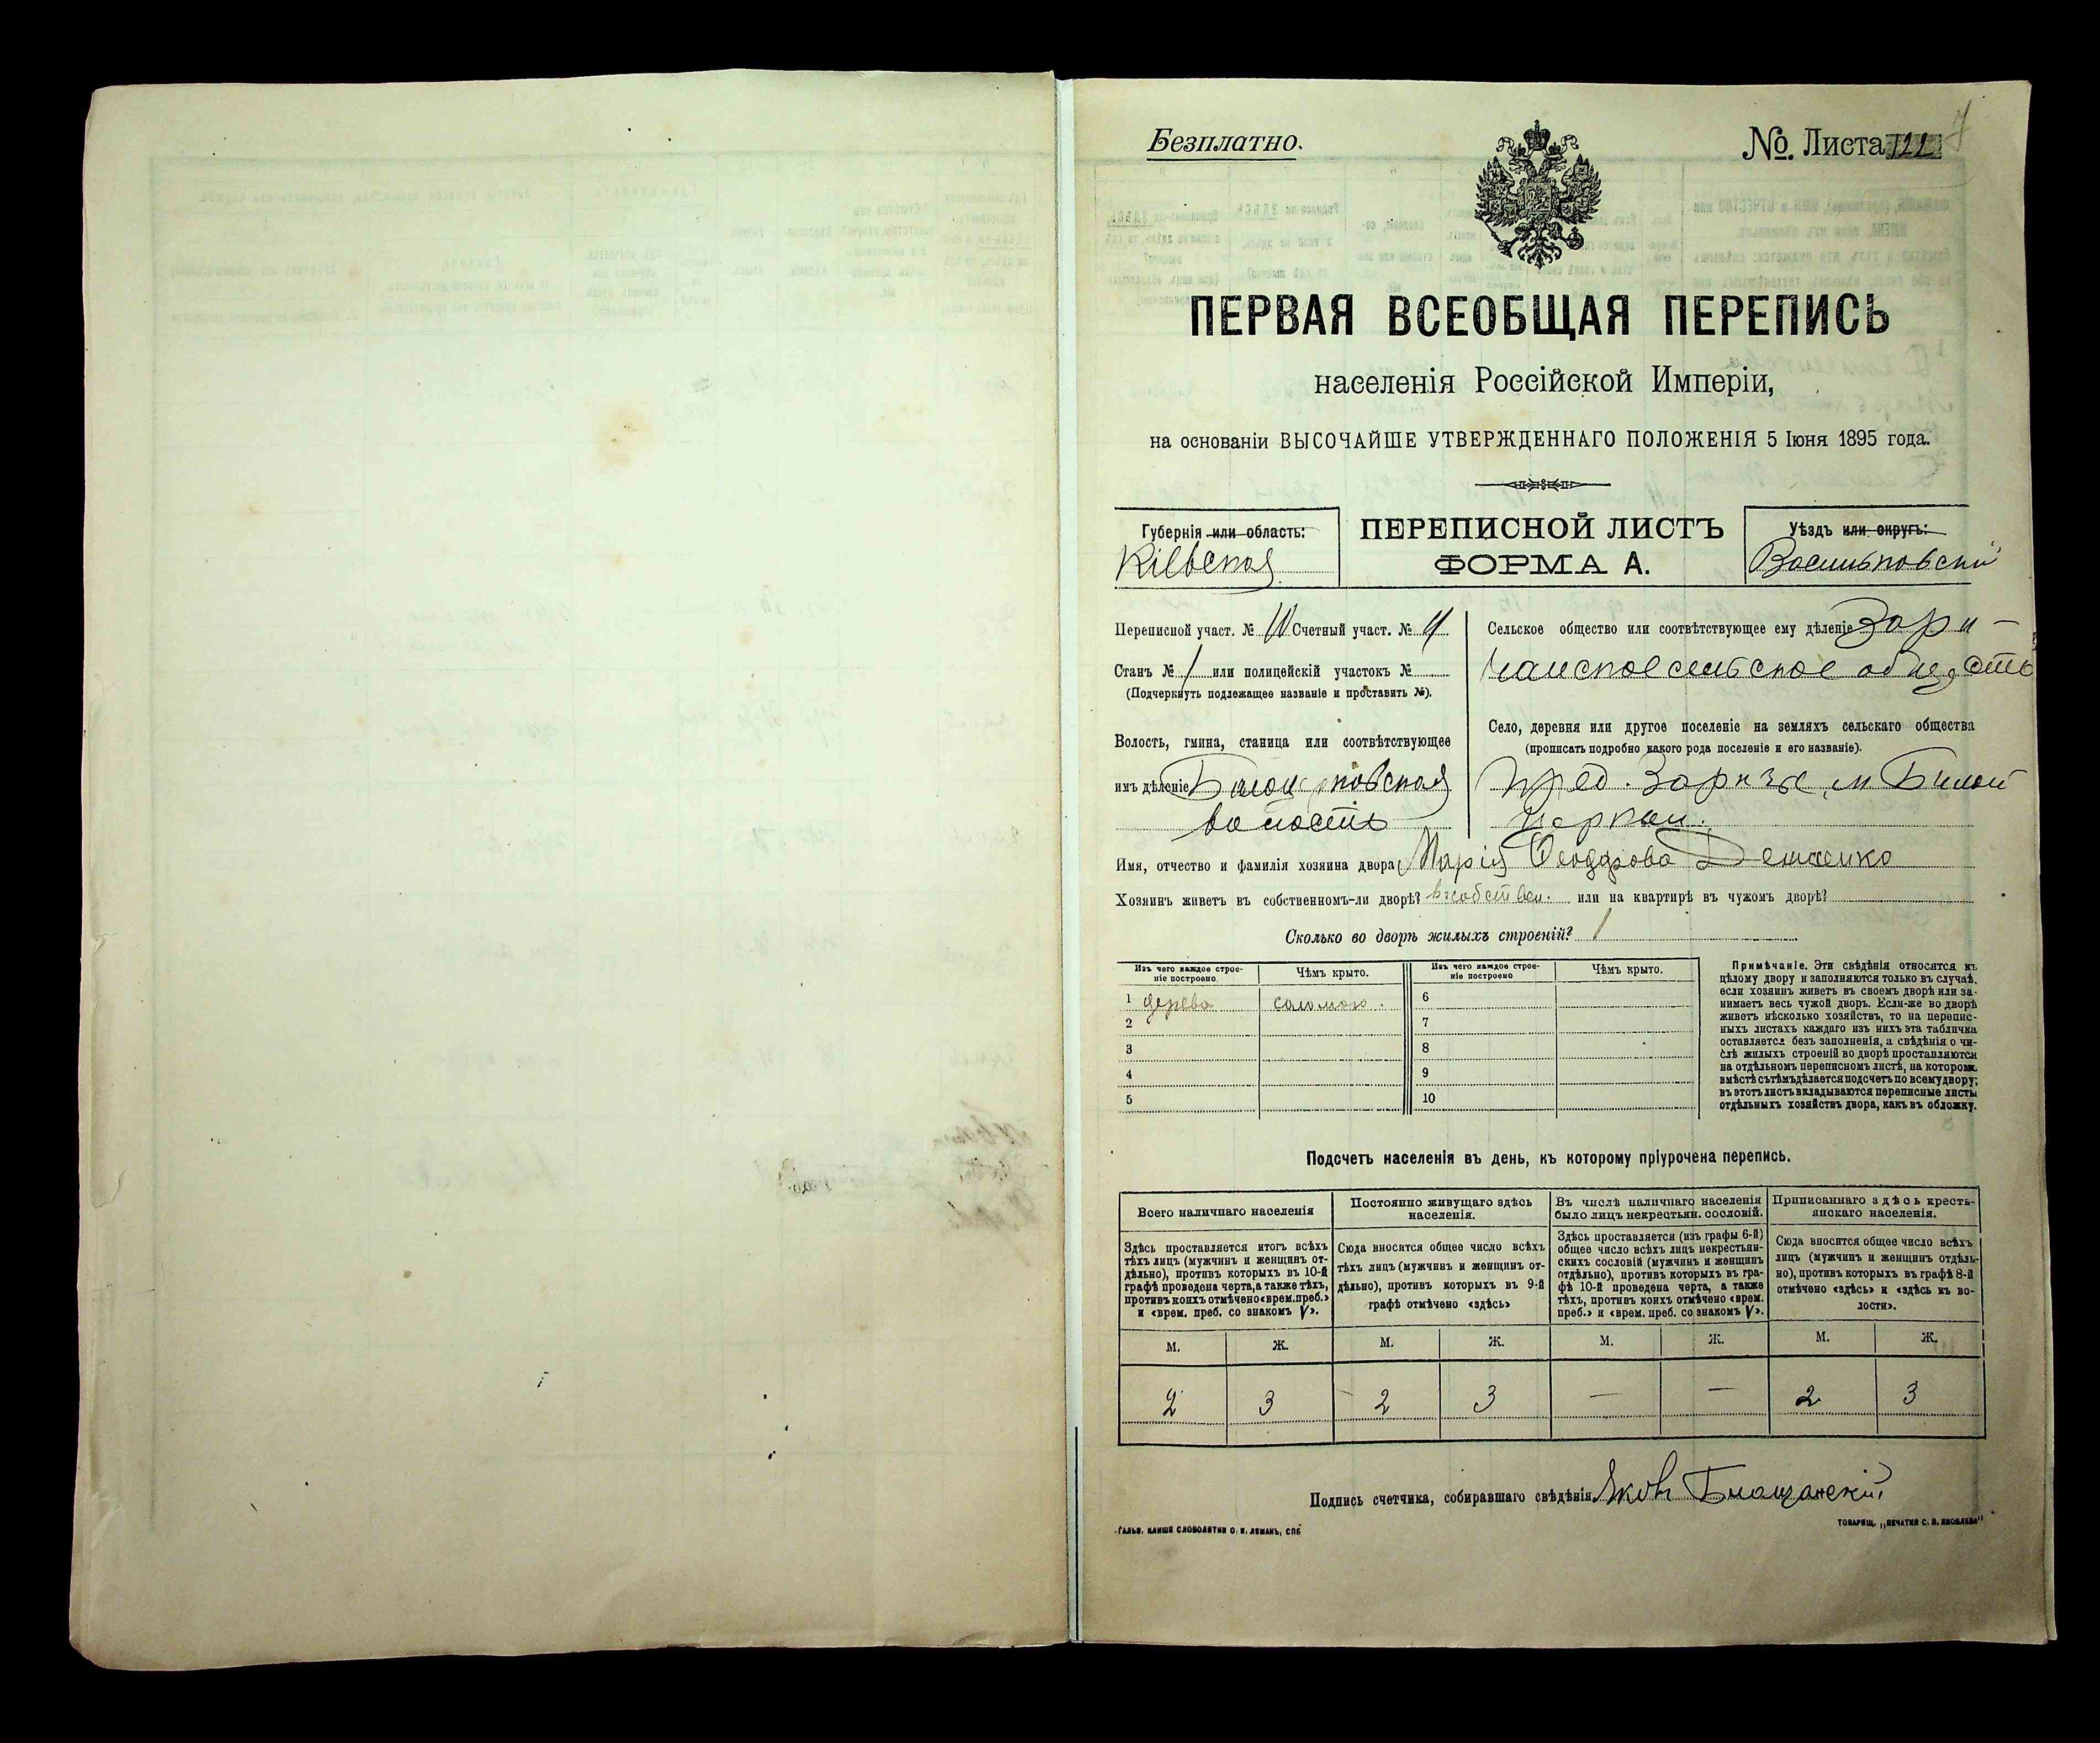 Безплатно.
№. Листа 122
ПЕРВАЯ ВСЕОБЩАЯ ПЕРЕПИСЬ
населенія Россійской Имперіи,
на основаніи ВЫСОЧАЙШЕ УТВЕРЖДЕННАГО ПОЛОЖЕНІЯ 5 Іюня 1895 года.
Губернія или область:
Кіевская
ПЕРЕПИСНОЙ ЛИСТЪ
ФОРМА А.
Уѣздъ или округъ:
Васильковскій
Переписной участ. № Счетный участ. №
Станъ № 1 или полицейскій участокъ №
(Подчеркнуть подлежащее названіе и проставить №).
Волость, гмина, станица или соотвѣтствующее
имъ дѣленіе Бѣлоцерковская
волость
Сельское общество или соотвѣтствующее ему дѣленіе Зари-
чанское сельское общество
Село, деревня или другое поселеніе на земляхъ сельскаго общества
(прописать подробно какого рода поселеніе и его названіе).
пред. Заричье, м. Бѣлой
Церкви.
Имя, отчество и фамилія хозяина двора Марія Феодорова Демченко
Хозяинъ живетъ въ собственномъ-ли дворѣ? въ собствен. или на квартирѣ въ чужомъ дворѣ?
Сколько во дворѣ жилыхъ строеній? 1
Изъ чего каждое строе-
ніе построено
Чѣмъ крыто.
Изъ чего каждое строе-
ніе построено
Чѣмъ крыто.
1 дерева соломою. 6
2 7
3 8
4 9
5 10
Примѣчаніе. Эти свѣдѣнія относятся къ
цѣлому двору и заполняются только въ случаѣ,
если хозяинъ живетъ въ своемъ дворѣ или за-
нимаетъ весь чужой дворъ. Если-же во дворѣ
живетъ нѣсколько хозяйствъ, то на перепис-
ныхъ листахъ каждаго изъ нихъ эта табличка
оставляется безъ заполненія, а свѣдѣнія о чи-
слѣ жилыхъ строеній во дворѣ проставляются
на отдѣльномъ переписномъ листѣ, на которомъ
вмѣстѣ съ тѣмъ дѣлается подсчетъ по всему двору;
въ этотъ листъ вкладываются переписные листы
отдѣльныхъ хозяйствъ двора, какъ въ обложку.
Подсчетъ населенія въ день, къ которому пріурочена перепись.
Всего наличнаго населенія
Постоянно живущаго здѣсь
населенія.
Въ числѣ наличнаго населенія
было лицъ некрестьян. сословій.
Приписаннаго здѣсь кресть-
янскаго населенія.
Здѣсь проставляется итогъ всѣхъ
тѣхъ лицъ (мужчинъ и женщинъ от-
дѣльно), противъ которыхъ въ 10-й
графѣ проведена черта, а также тѣхъ,
противъ коихъ отмѣчено «врем. преб.»
и «врем. преб. со знакомъ V».
Сюда вносится общее число всѣхъ
тѣхъ лицъ (мужчинъ и женщинъ от-
дѣльно), противъ которыхъ въ 9-й
графѣ отмѣчено «здѣсь»
Здѣсь проставляется (изъ графы 6-й)
общее число всѣхъ лицъ некрестьян-
скихъ сословій (мужчинъ и женщинъ
отдѣльно), противъ которыхъ въ гра-
фѣ 10-й проведена черта, а также
тѣхъ, противъ коихъ отмѣчено «врем.
преб.» и «врем. преб. со знакомъ V».
Сюда вносится общее число всѣхъ
лицъ (мужчинъ и женщинъ отдѣль-
но), противъ которыхъ въ графѣ 8-й
отмѣчено «здѣсь» и «здѣсь къ во-
лости».
М. Ж. М. Ж. М. Ж. М. Ж.
2 3 2 3 — — 2 3
Подпись счетчика, собиравшаго свѣдѣнія Яковъ
ГАЛЬВ. КЛИШЕ СЛОВОЛИТНИ О. И. ЛЕМАНЪ, СПБ
ТОВАРИЩ. „ПЕЧАТНЯ С. П. ЯКОВЛЕВА"